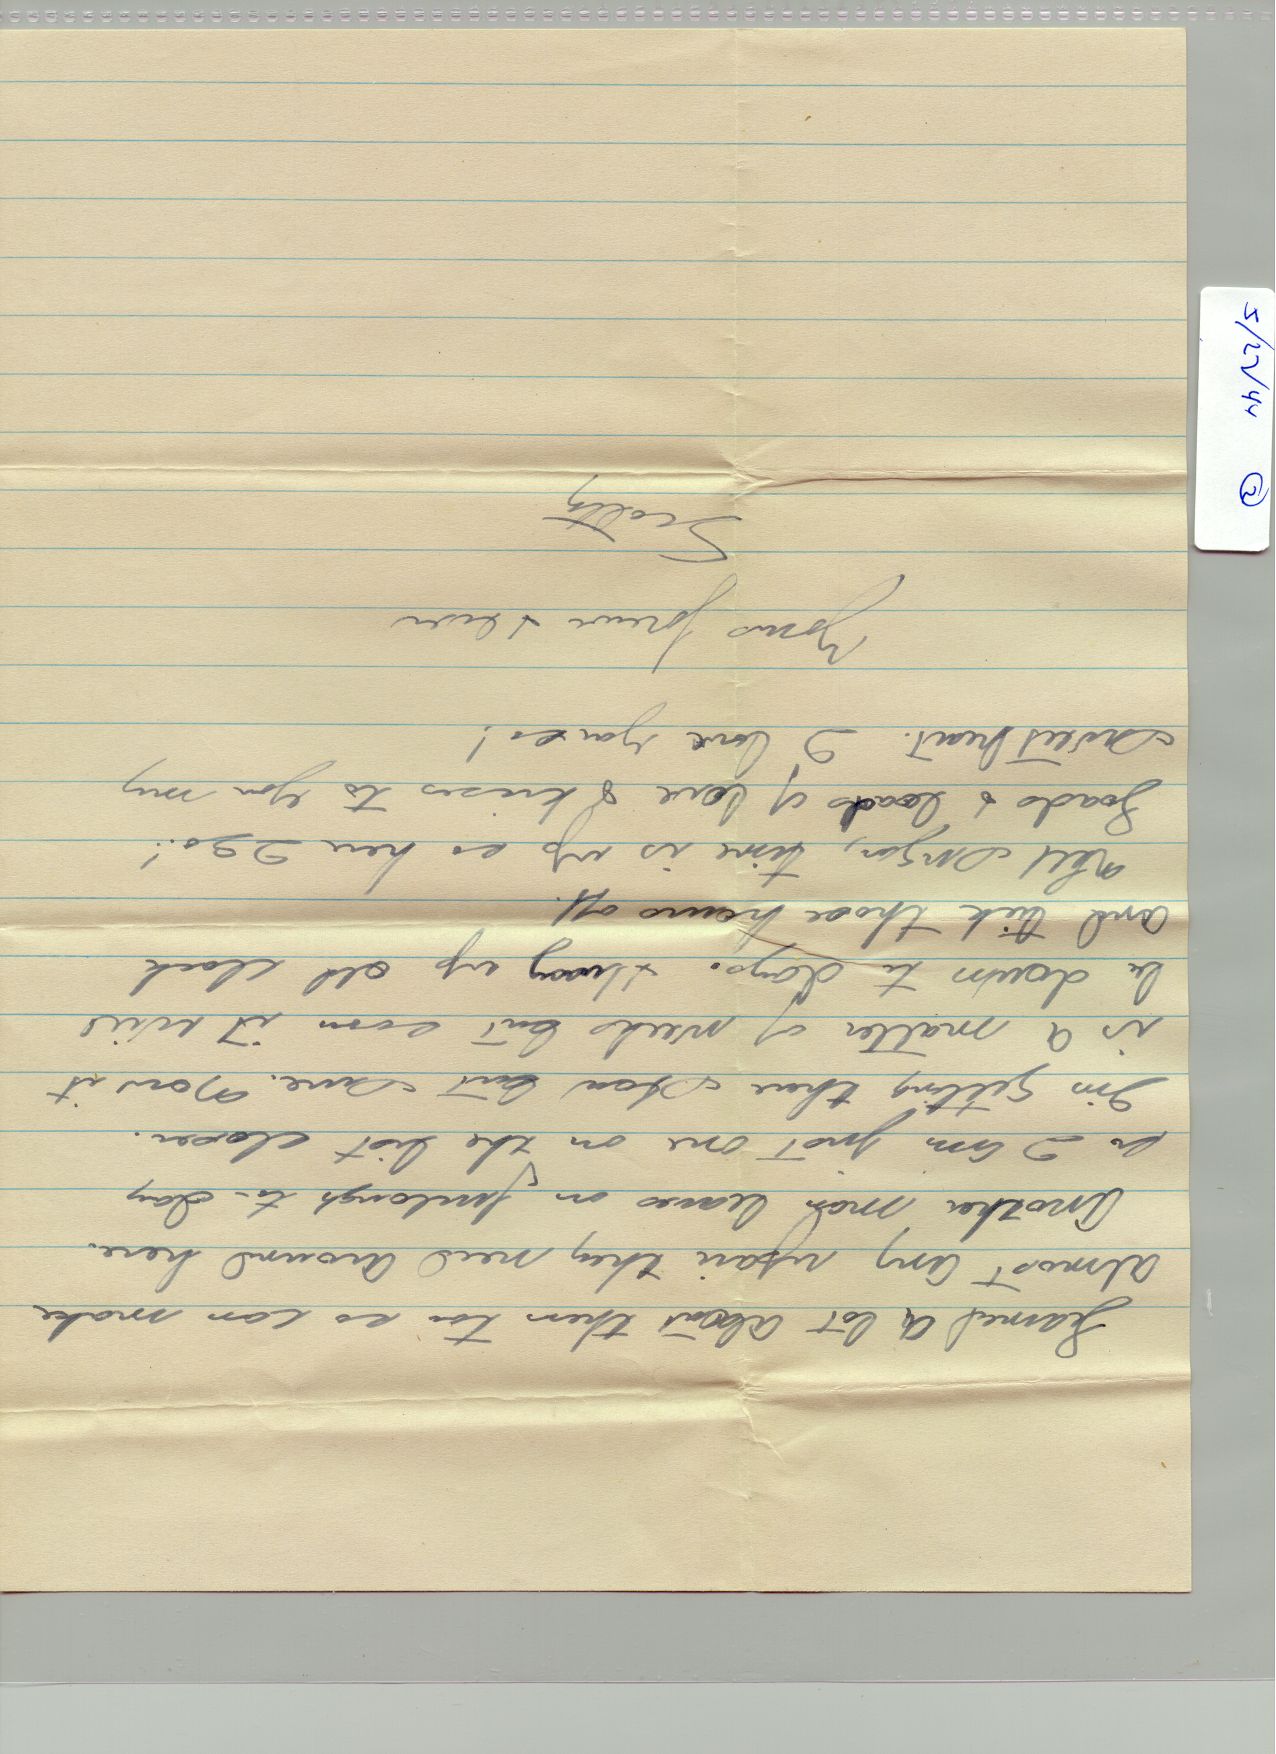 learned a lot about them too so can make
almost any repair they need around here.
Another man leaves on furlough to-day
so I am just one on the list closer.
I'm getting there slow but sure. Now it
is a matter of weeks but soon it will
be down to days. Hurry up old clock
and tick those hours off.
Well Sugar, time is up so here I go!
Loads & loads of love & kisses to you my
Sweetheart. I love you so!
Yours forever & ever
Scotty
5/27/44 ②